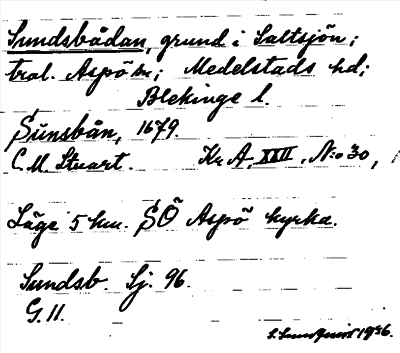 Sundsbådan, grund i Saltsjön;
tral. Aspö sn; Medelstads hd;
Blekinge l.
Sünsbån, 1679.
C. M. Stuart. Kr. A. XXII. N:o 30,
Läge 5 km. SÖ Aspö kyrka.
Sundsb. Sj. 96.
G. 11.
1936.